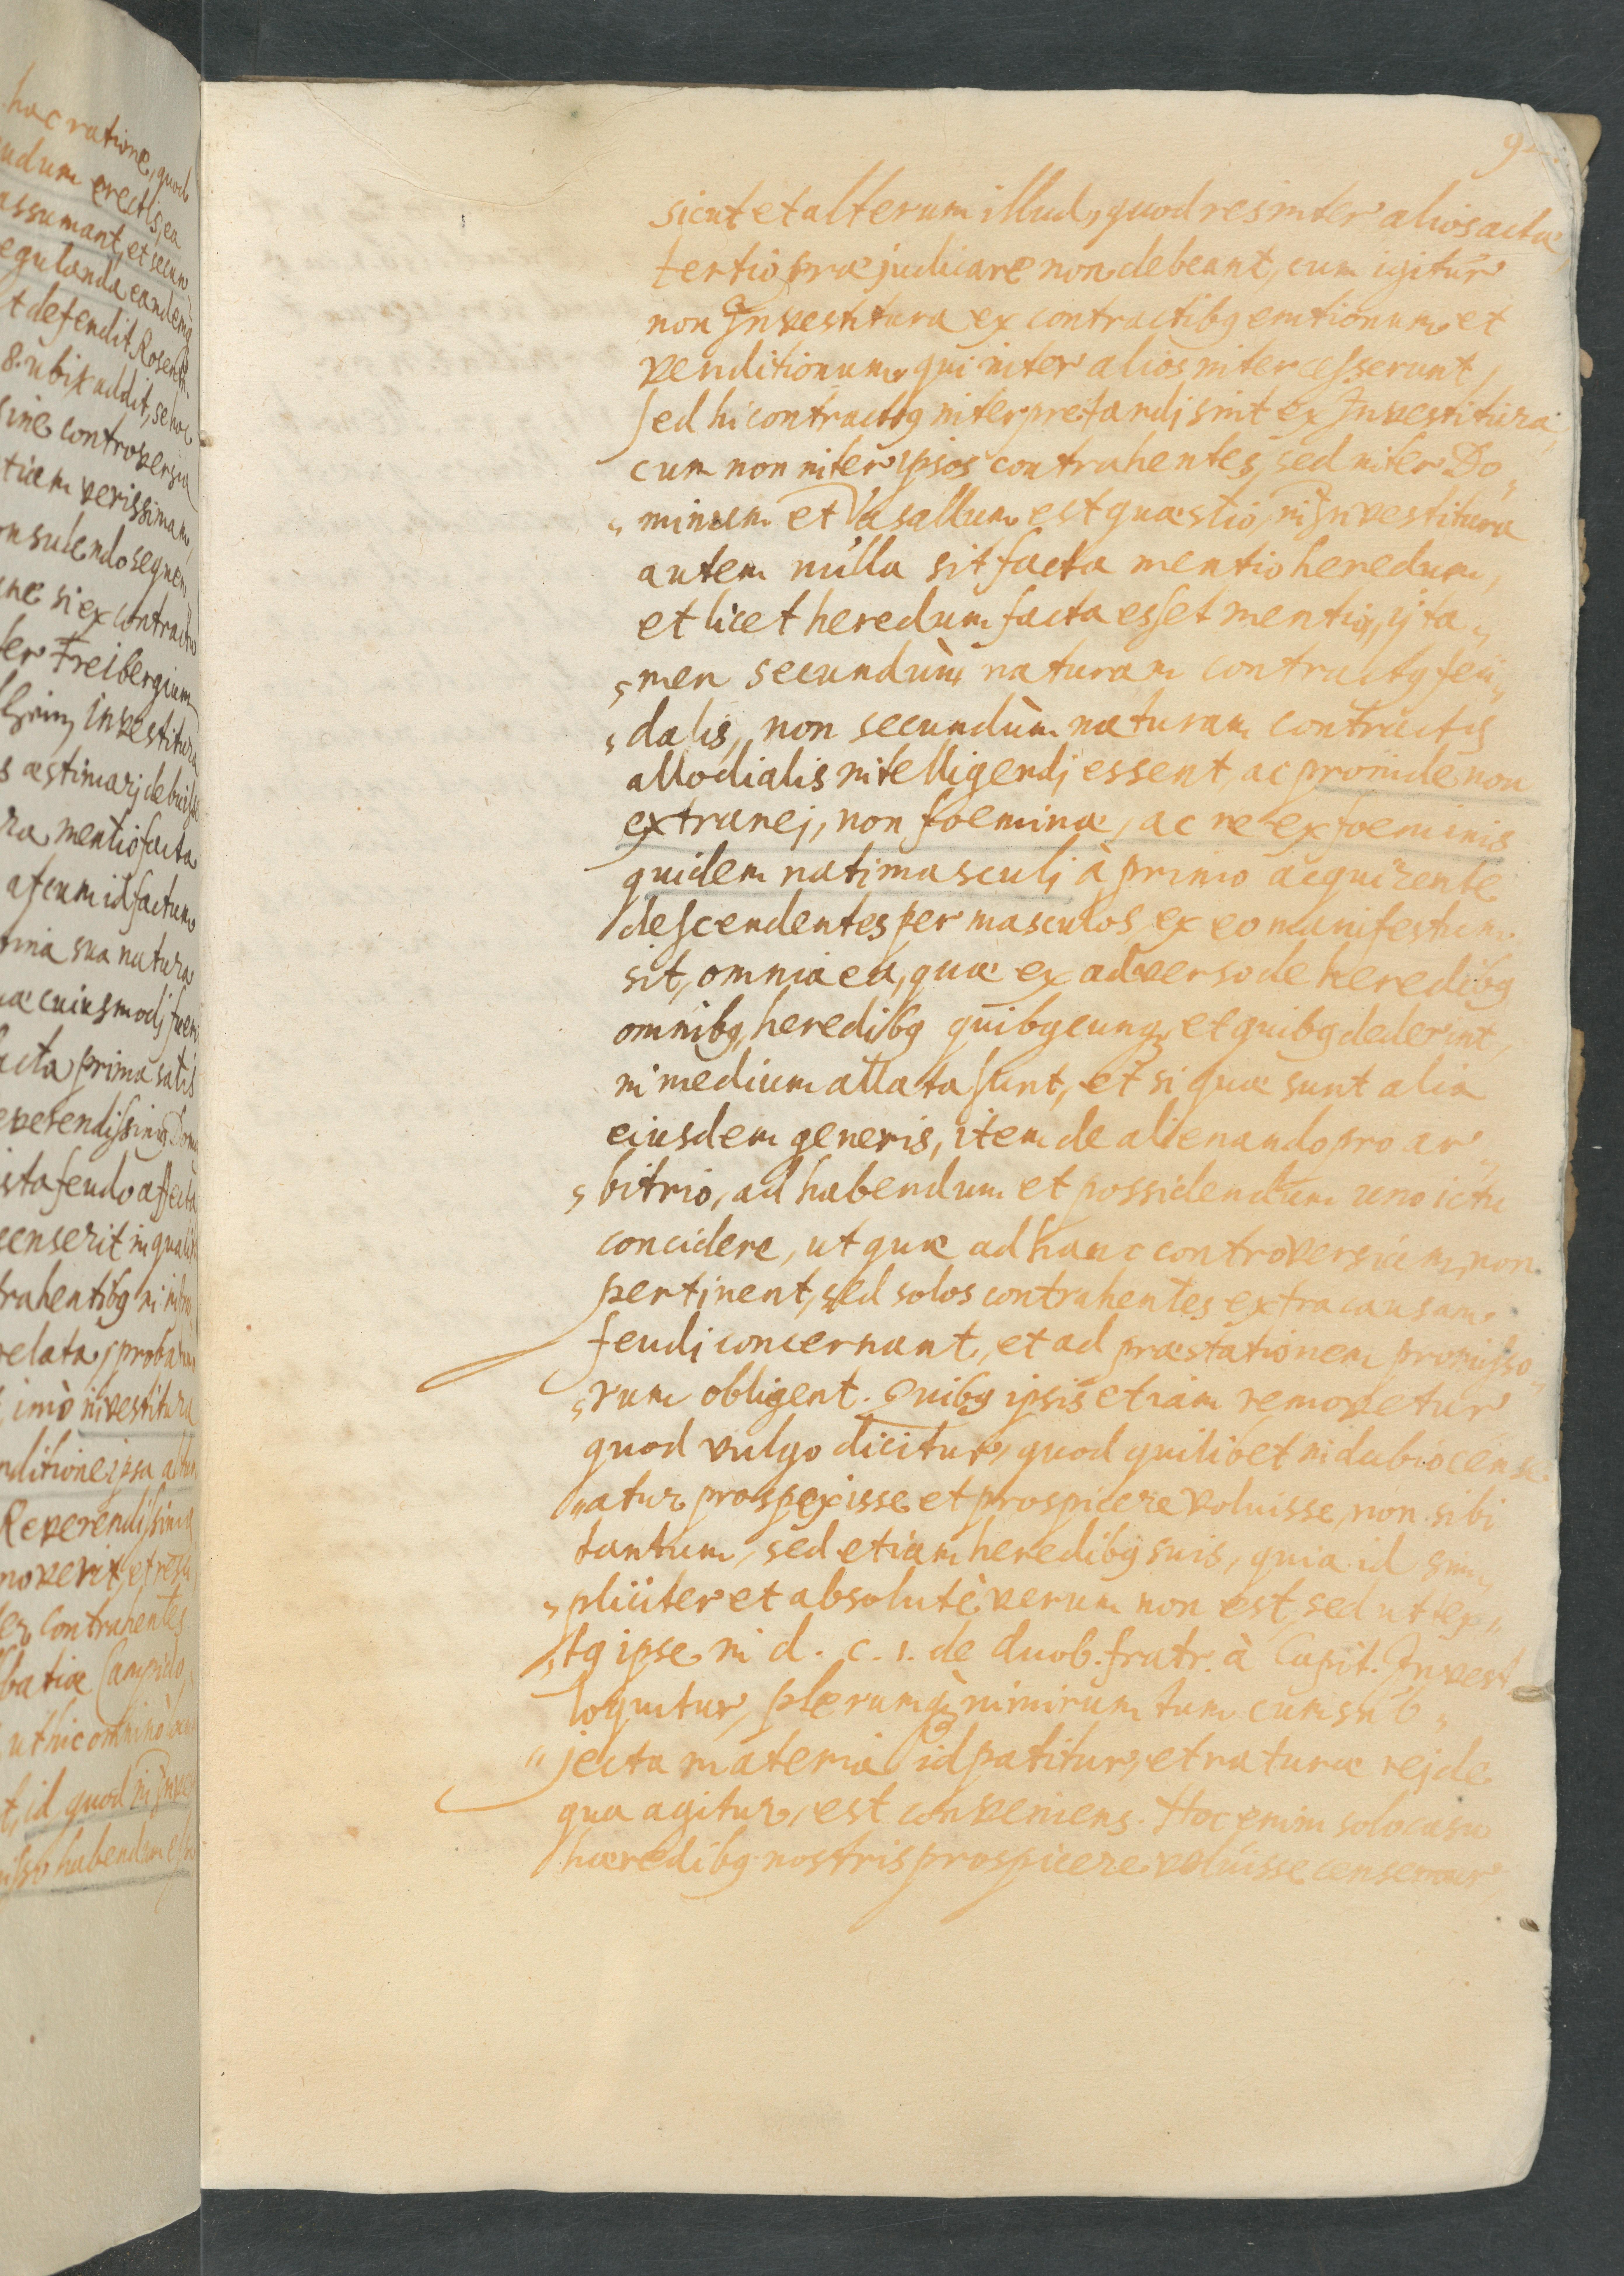 hac ratione, quod
udum erectis, ea
assumant, et secun
egulanda eandemq
t defendit Rosenth.
8. ubi addit, se hoc
sine controversia
tiam verissimam,
onsulendo sequen
ne si ex contractu
er Freibergium
Investitura
s æstimarj debuisse
ra mentio facta
at cum id factum
omnia sua natura
cuiusmodj fueri
acta prima satis
everendissimg Dom
ista feudo affecta
censerit in quali
trahentibg in
relata, probatur
imò investitura
nditione ipsa
Reverendissimg
noverit, et
contrahentes
batiæ Campido
ut hic omninò
t, id quod in Inve
habendum
9
sicut et alterum illud, quod res inter alios actæ
tertio præjudicare non debeant, cum igitur
non Investitura ex contractibg emtionum et
venditionum, qui inter alios intercesserunt,
sed hi contractg interpretandj sint ex Investitura,
cum non inter ipsos contrahentes, sed inter Do„
„minum et Vasallum est quæstio, in Investitura
autem nulla sit facta mentio heredum,
et licet heredum facta esset mentio, ij ta„
„men secundùm naturam contractg feu„
„dalis, non secundùm naturam contractg
allodialis intelligendj essent, ac proinde non
extranej, non foeminæ, ac ne ex foeminis
quidem nati masculj à primo acquirente
descendentes per masculos, ex eo manifestum
sit, omnia ea, quæ ex adverso de heredibg
omnibg, heredibg quibgcunq, et quibg dederint,
in medium allata sunt, et si quæ sunt alia
eiusdem generis, item de alienando pro ar„
„bitrio, ad habendum et possidendum uno ictu
concidere, ut quæ ad hanc controversiam, non
pertinent, sed solos contrahentes extra causam
feudj concernant, et ad præstationem promisso„
„rum obligent. Quibg ipsis etiam removetur
quod vulgo dicitur, quod quilibet in dubio cense„
„atur prospexisse et prospicere voluisse, non sibi
tantum, sed etiam heredibg suis, quia id sim„
„pliciter et absolutè verum non est, sed ut tex„
„tg ipse in d. c. 1. de duob. fratr. à Capit. Invest
loquitur, plerumq, nimirum tum cum sub„
„jecta materia id patitur, et naturæ rej de
qua agitur, est conveniens. Hoc enim solo casu
hæredibg nostris prospicere voluisse censemur,